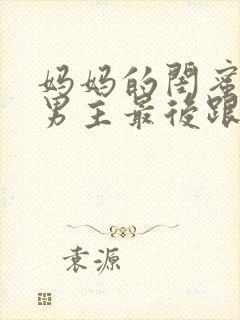 妈妈的闺蜜
男主最后跟
袁源